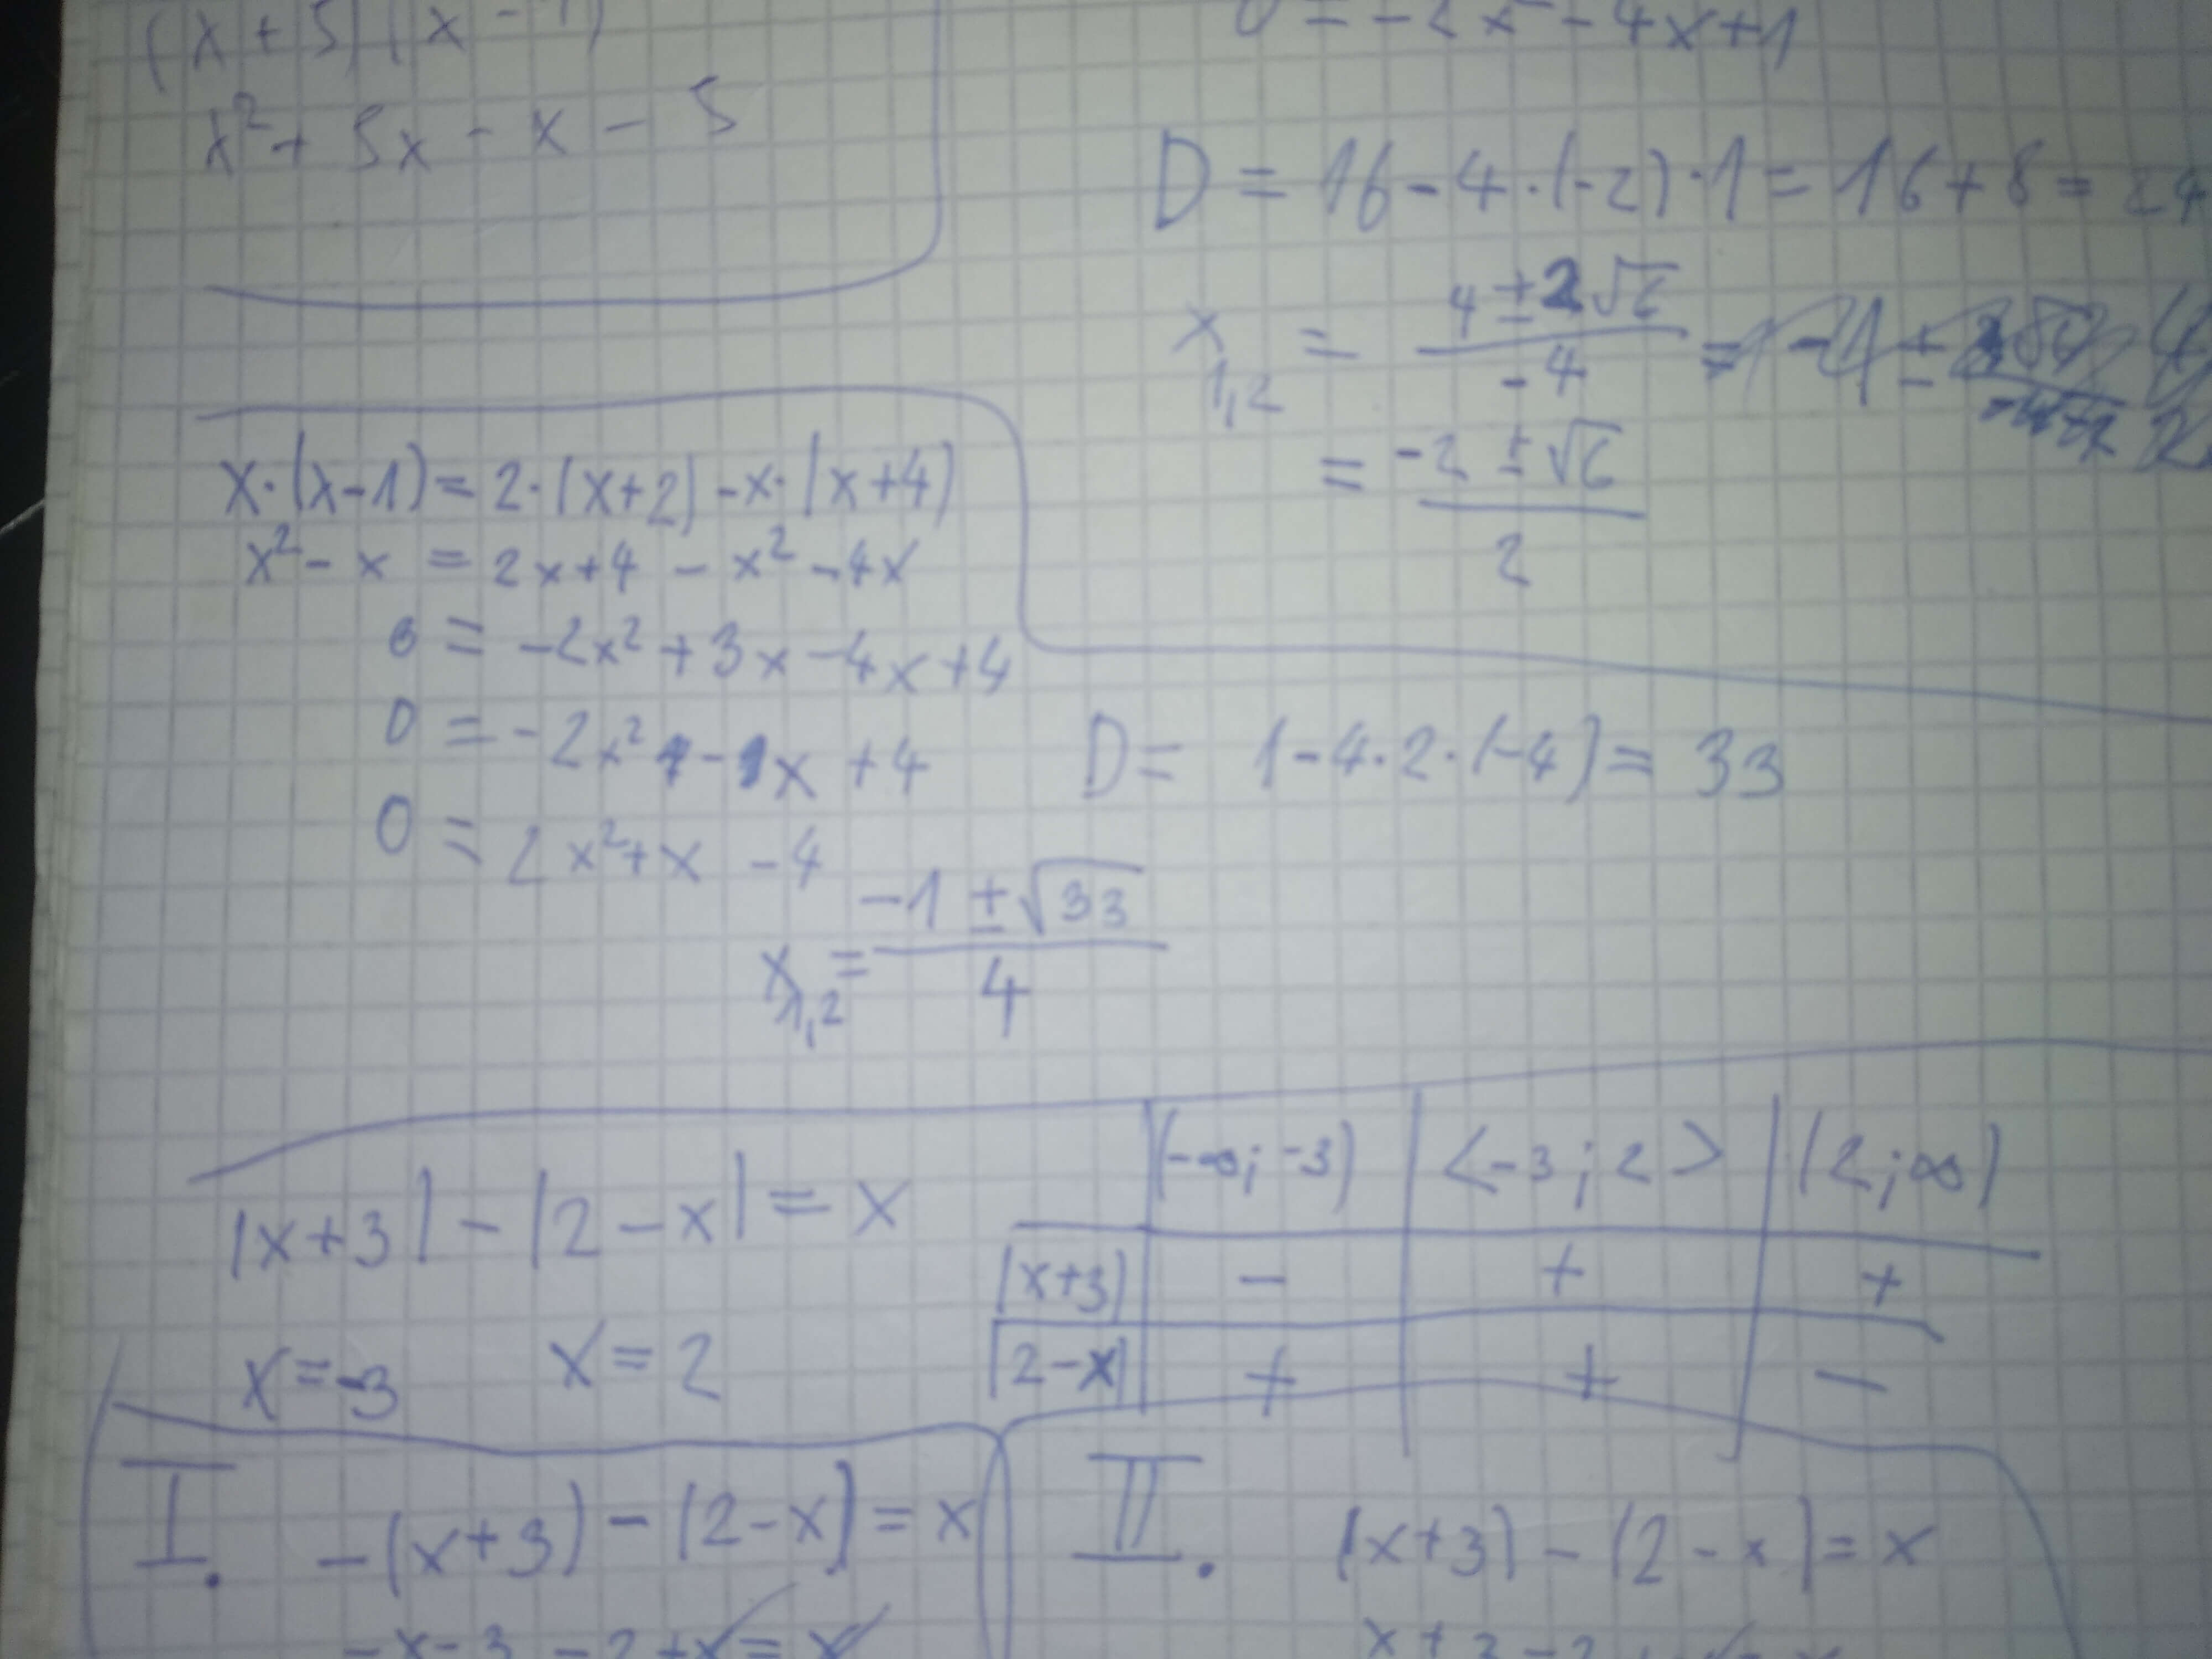 (x+5)(x-1)
x²+5x-x-5
0=-2x²-4x+1
D=16-4·(-2)·1=16+8=24
x1,2 = (4±2√6)/-4 =
= (-2±√6)/2
x·(x-1)=2·(x+2)-x·(x+4)
x²-x=2x+4-x²-4x
0=-2x²+3x-4x+4
0=-2x²-1x+4
0=2x²+x-4
D=1-4·2·(-4)=33
x1,2=(-1±√33)/4
|x+3|-|2-x|=x
x=-3 x=2
(-∞;-3) <-3;2> (2;∞)
|x+3| - + +
|2-x| + + -
I. -(x+3)-(2-x)=x
-x-3-2+x=x
II. (x+3)-(2-x)=x